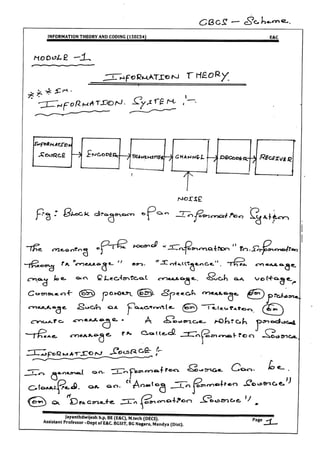 CBCS - Scheme.
INFORMATION THEORY AND CODING (15EC54) E&C
MODULE -1
INFORMATION THEORY.
INFORMATION SYSTEM :-
INFORMATION SOURCE → ENCODER → TRANSMITTER → CHANNEL → DECODER → RECEIVER
NOISE
Fig: Block diagram of an Information System
The meaning of the word "Information" in Information
theory is "message" or "Intelligence". This message
may be an Electrical message such as voltage,
current (or) power (or) Speech message (or) picture
message such as facsimile (or) Television (or)
music message. A Source which produces
these message is called Information Source.
INFORMATION SOURCE :
In general an Information Source Can be
Classified as an "Analog Information Source"
(or) a "Discrete Information Source".
Jayanthdwijesh h.p. BE (E&C), M.tech (DECS).
Assistant Professor - Dept of E&C. BGSIT, BG Nagara, Mandya (Dist).
Page 1